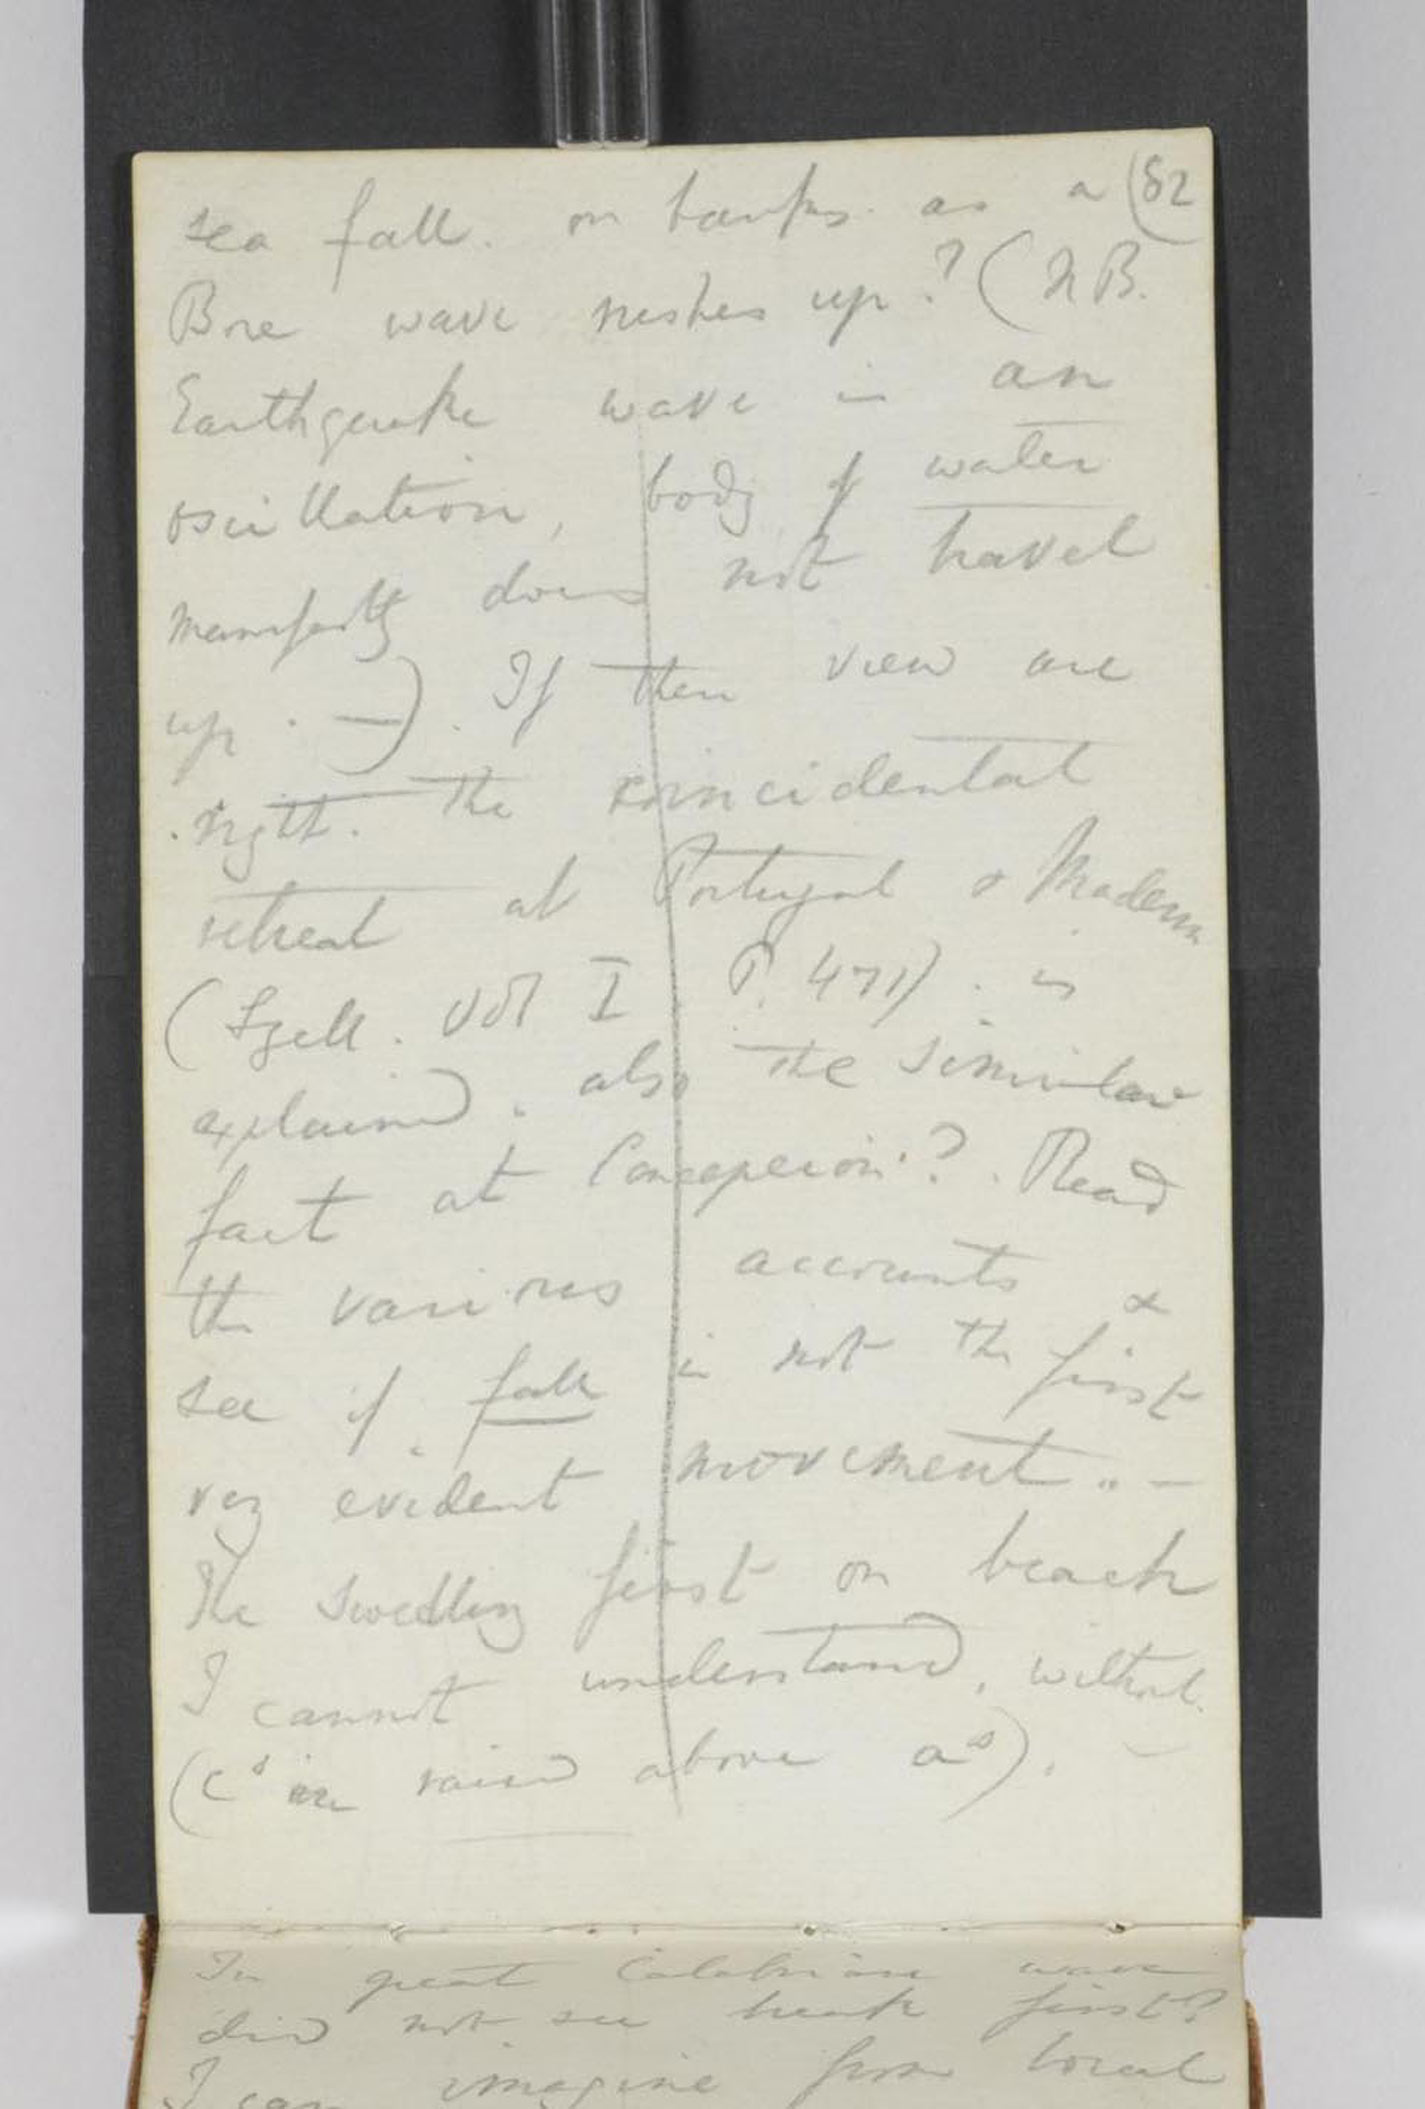 sea fall. on banks. as a (82
Bore wave rushes up? (NB.
Earthquake wave is an
oscillation, body of water
manifestly does not travel
up. —). If then view are
right. the coincidental
retreat at Portugal & Madeira
(Lyell. Vol I P. 471). is
explained. also the similar
fact at Concepcion.? . Read
the various accounts &
see if fall is not the first
very evident movement.. —
The swelling first on beach
I cannot understand, without.
(cˢ are raised above aˢ). —
In great Calabrian wave
did not sea break first?
I can imagine from local